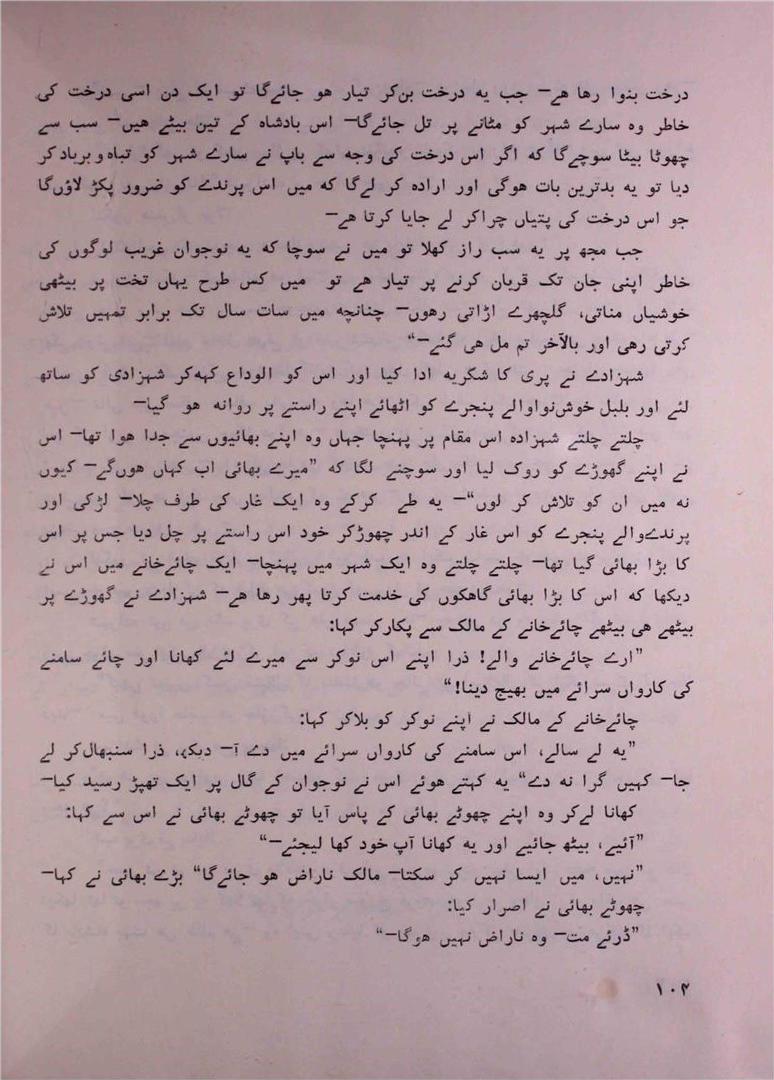 درخت بنوا رہا ہے— جب یہ درخت بن‌کر تیار ہو جائے‌گا تو ایک دن اسی درخت کی
خاطر وہ سارے شہر کو مٹانے پر تل جائے‌گا— اس بادشاہ کے تین بیٹے ہیں— سب سے
چھوٹا بیٹا سوچے‌گا کہ اگر اس درخت کی وجہ سے باپ نے سارے شہر کو تباہ و برباد کر
دیا تو یہ بدترین بات ہوگی اور ارادہ کر لے‌گا کہ میں اس پرندے کو ضرور پکڑ لاؤں‌گا
جو اس درخت کی پتیاں چراکر لے جایا کرتا ہے—
جب مجھ پر یہ سب راز کھلا تو میں نے سوچا کہ یہ نوجوان غریب لوگوں کی
خاطر اپنی جان تک قربان کرنے پر تیار ہے تو میں کس طرح یہاں تخت پر بیٹھی
خوشیاں مناتی، گلچھرے اڑاتی رہوں— چنانچہ میں سات سال تک برابر تمہیں تلاش
کرتی رہی اور بالآخر تم مل ہی گئے—“
شہزادے نے پری کا شکریہ ادا کیا اور اس کو الوداع کہہ‌کر شہزادی کو ساتھ
لئے اور بلبل خوش‌نواوالے پنجرے کو اٹھائے اپنے راستے پر روانہ ہو گیا—
چلتے چلتے شہزادہ اس مقام پر پہنچا جہاں وہ اپنے بھائیوں سے جدا ہوا تھا— اس
نے اپنے گھوڑے کو روک لیا اور سوچنے لگا کہ ”میرے بھائی اب کہاں ہوں‌گے— کیوں
نہ میں ان کو تلاش کر لوں“— یہ طے کرکے وہ ایک غار کی طرف چلا— لڑکی اور
پرندے‌والے پنجرے کو اس غار کے اندر چھوڑکر خود اس راستے پر چل دیا جس پر اس
کا بڑا بھائی گیا تھا— چلتے چلتے وہ ایک شہر میں پہنچا— ایک چائے‌خانے میں اس نے
دیکھا کہ اس کا بڑا بھائی گاھکوں کی خدمت کرتا پھر رہا ہے— شہزادے نے گھوڑے پر
بیٹھے ہی بیٹھے چائے‌خانے کے مالک سے پکارکر کہا:
”ارے چائے‌خانے والے! ذرا اپنے اس نوکر سے میرے لئے کھانا اور چائے سامنے
کی کارواں سرائے میں بھیج دینا!“
چائے‌خانے کے مالک نے اپنے نوکر کو بلاکر کہا:
”یہ لے سالے، اس سامنے کی کارواں سرائے میں دے آ— دیکھ، ذرا سنبھال‌کر لے
جا— کہیں گرا نہ دے“ یہ کہتے ہوئے اس نے نوجوان کے گال پر ایک تھپڑ رسید کیا—
کھانا لےکر وہ اپنے چھوٹے بھائی کے پاس آیا تو چھوٹے بھائی نے اس سے کہا:
”آئیے، بیٹھ جائیے اور یہ کھانا آپ خود کھا لیجئے—“
”نہیں، میں ایسا نہیں کر سکتا— مالک ناراض ہو جائے‌گا“ بڑے بھائی نے کہا—
چھوٹے بھائی نے اصرار کیا:
”ڈرئے مت— وہ ناراض نہیں ہوگا—“
۱۰۲